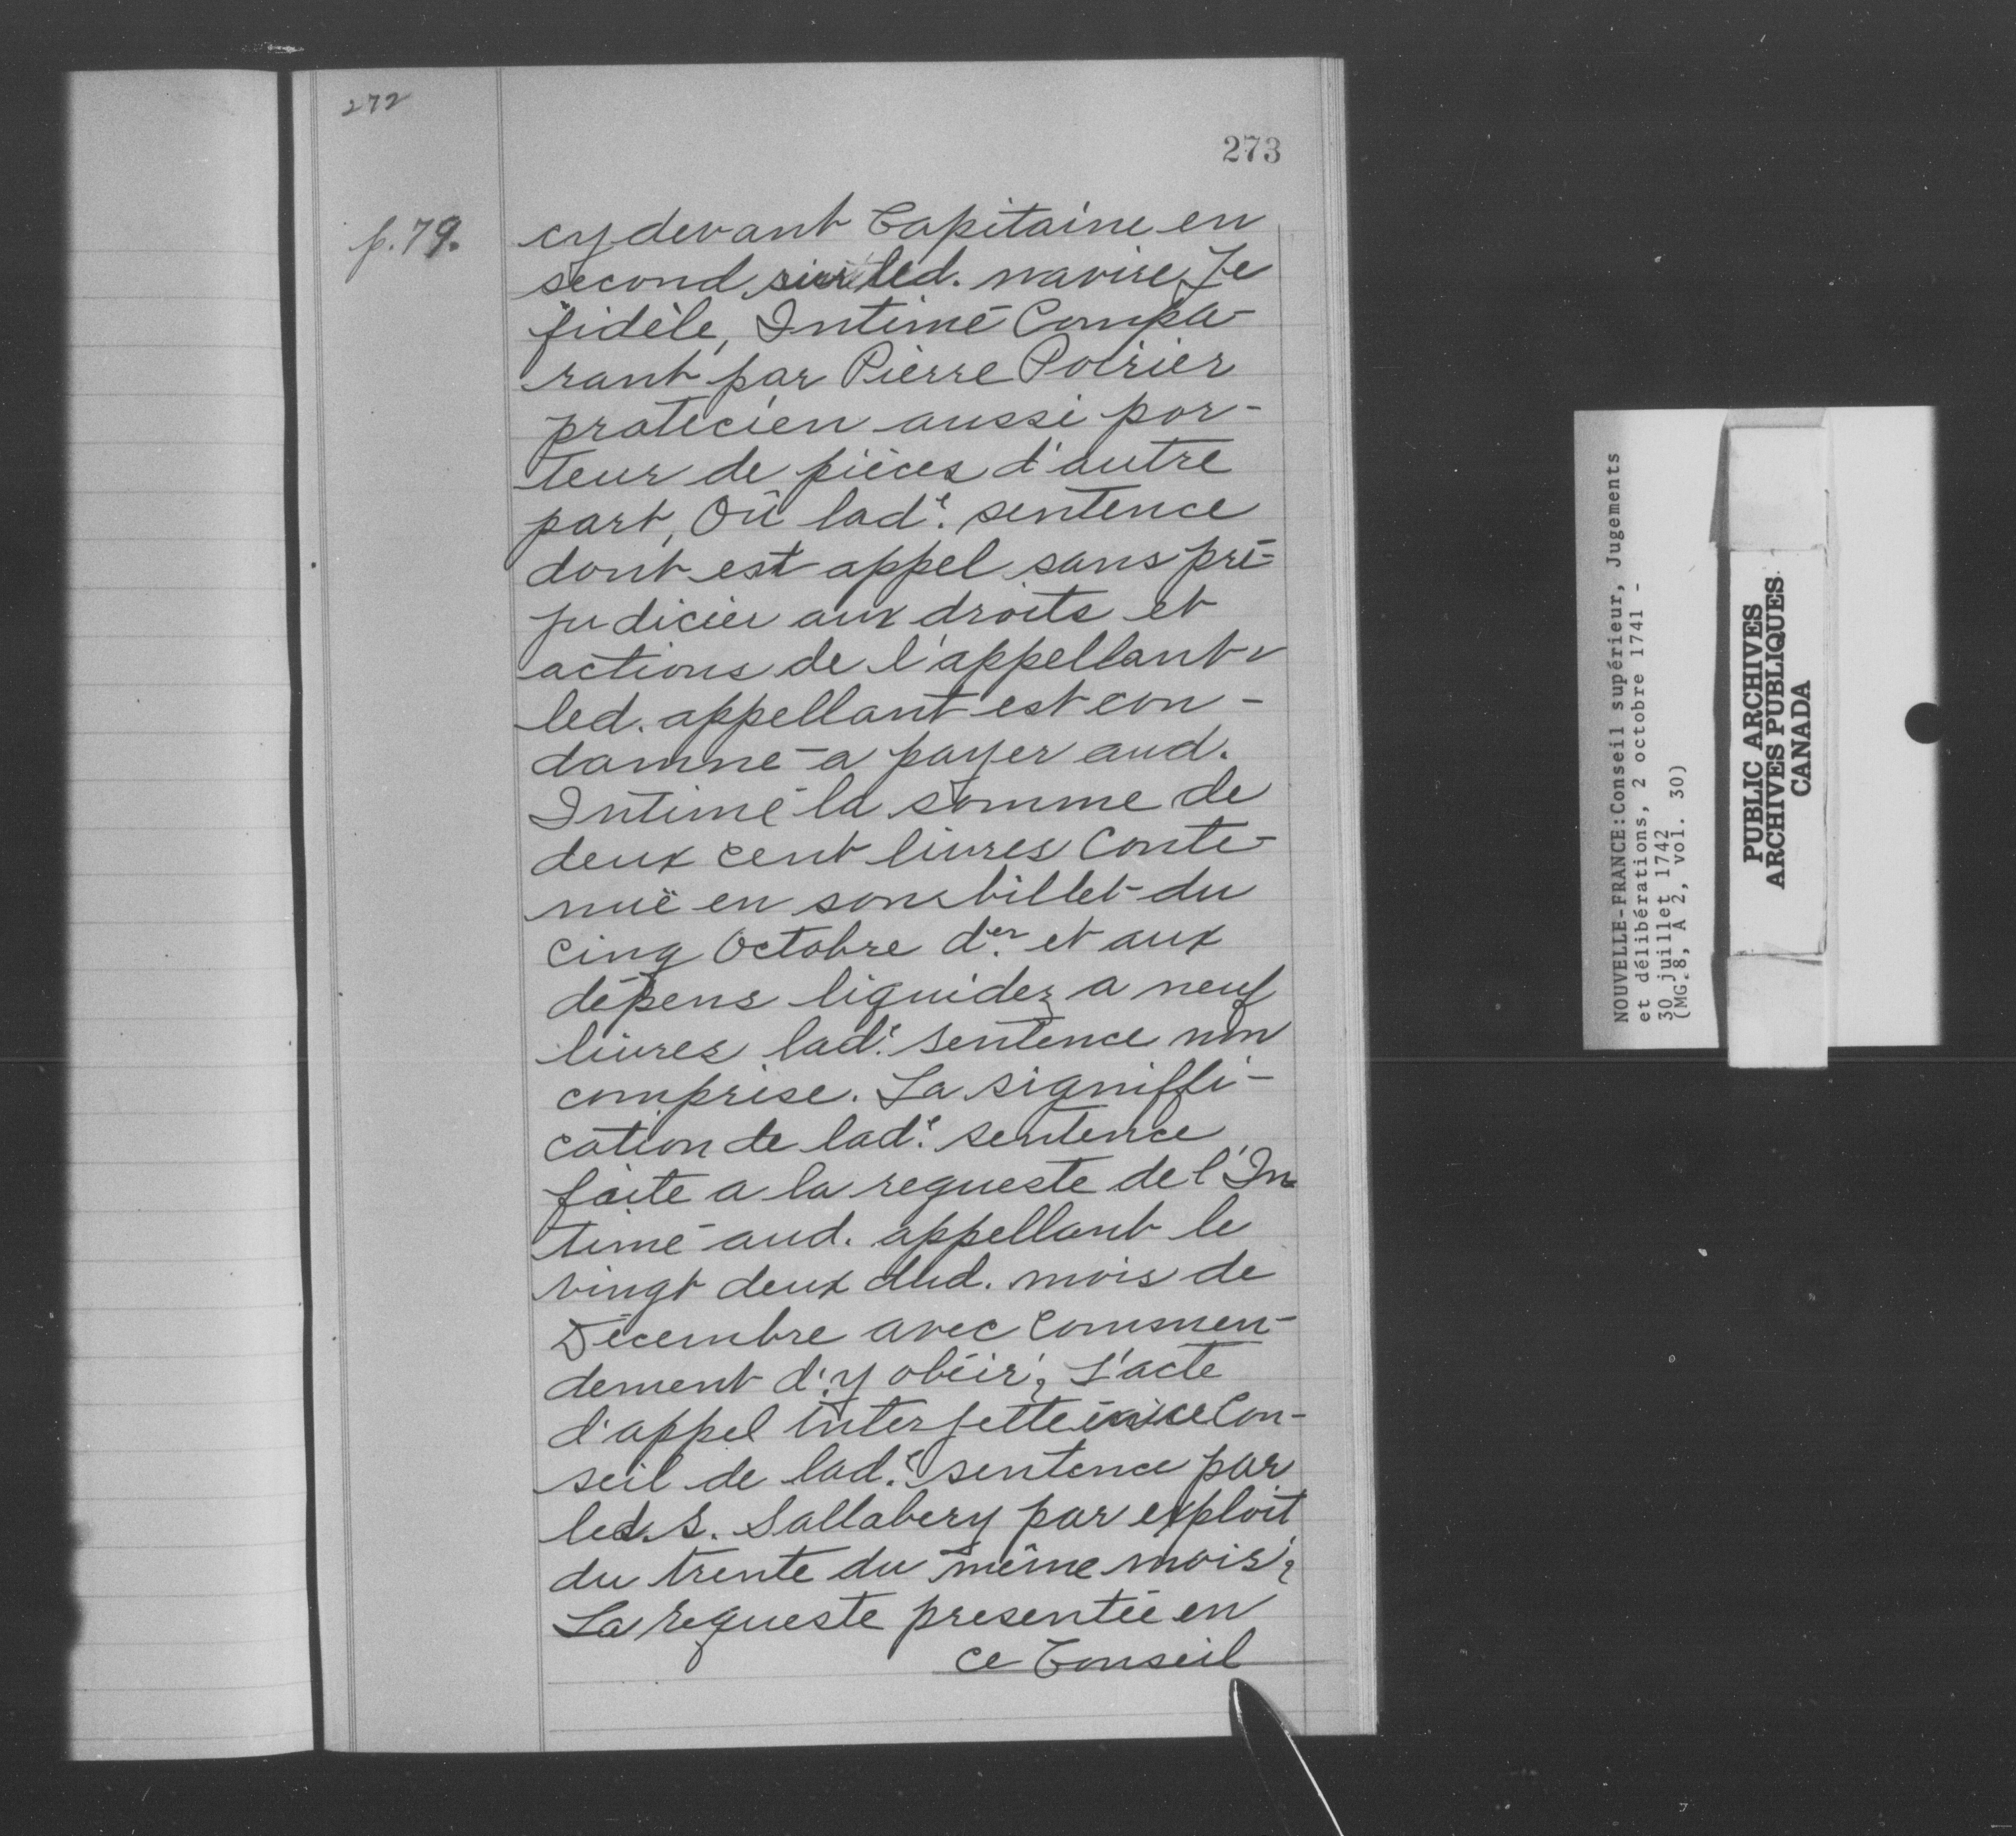 272
273
p. 79.
cy devant Capitaine en
second sur led. navire Le
fidèle, Intimé Compa-
rant par Pierre Poirier
praticien aussi por-
teur de pièces d'autre
part, Où lad.e sentence
dont est appel sans pré-
judicier aux droits et
actions de l'appellant
led. appellant est con-
damné a payer aud.
Intimé la somme de
deux cent livres Conte-
nuë en son billet du
cinq Octobre d.er et aux
dépens liquidez a neuf
livres lad.e sentence non
comprise. La signiffi-
cation de lad.e sentence
faite a la requeste de l'In
timé aud. appellant le
vingt deux dud. mois de
Décembre avec Commen-
dement d'y obéir; L'acte
d'appel interjetté en ce Con-
seil de lad.e sentence par
led. S. Sallabery par exploit
du trente du même mois;
La requeste presentée en
ce Conseil
NOUVELLE-FRANCE:Conseil supérieur, Jugements
et délibérations, 2 octobre 1741 -
30 juillet 1742
(MG.8, A 2, vol. 30)
PUBLIC ARCHIVES
ARCHIVES PUBLIQUES
CANADA